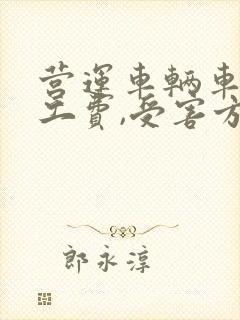 营運車輌車
工費,受害方
郎永淳